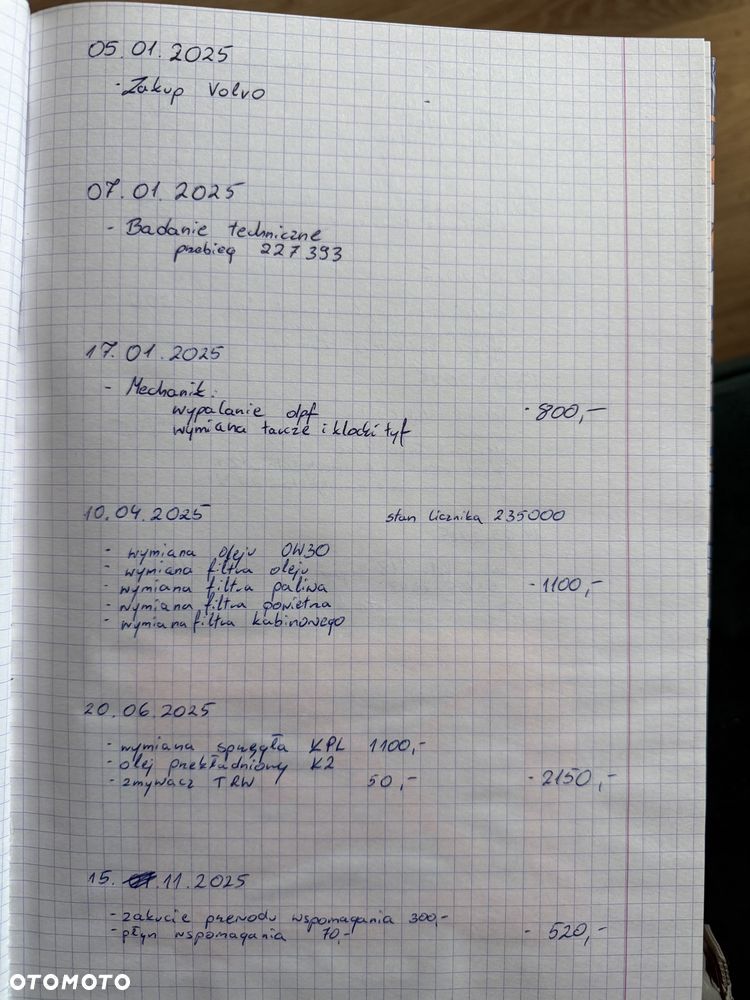 05.01.2025
- Zakup Volvo
07.01.2025
- Badanie techniczne
przebieg 227393
17.01.2025
- Mechanik:
wypalanie dpf - 800,-
wymiana tarcze i klocki tył
10.04.2025 stan licznika 235000
- wymiana oleju 0W30
- wymiana filtra oleju
- wymiana filtra paliwa - 1100,-
- wymiana filtra powietrza
- wymiana filtra kabinowego
20.06.2025
- wymiana sprzęgła KPL 1100,-
- olej przekładniowy K2
- zmywacz TRW 50,- - 2150,-
15.11.2025
- zakucie przewodu wspomagania 300,-
- płyn wspomagania 70,- - 520,-
OTOMOTO